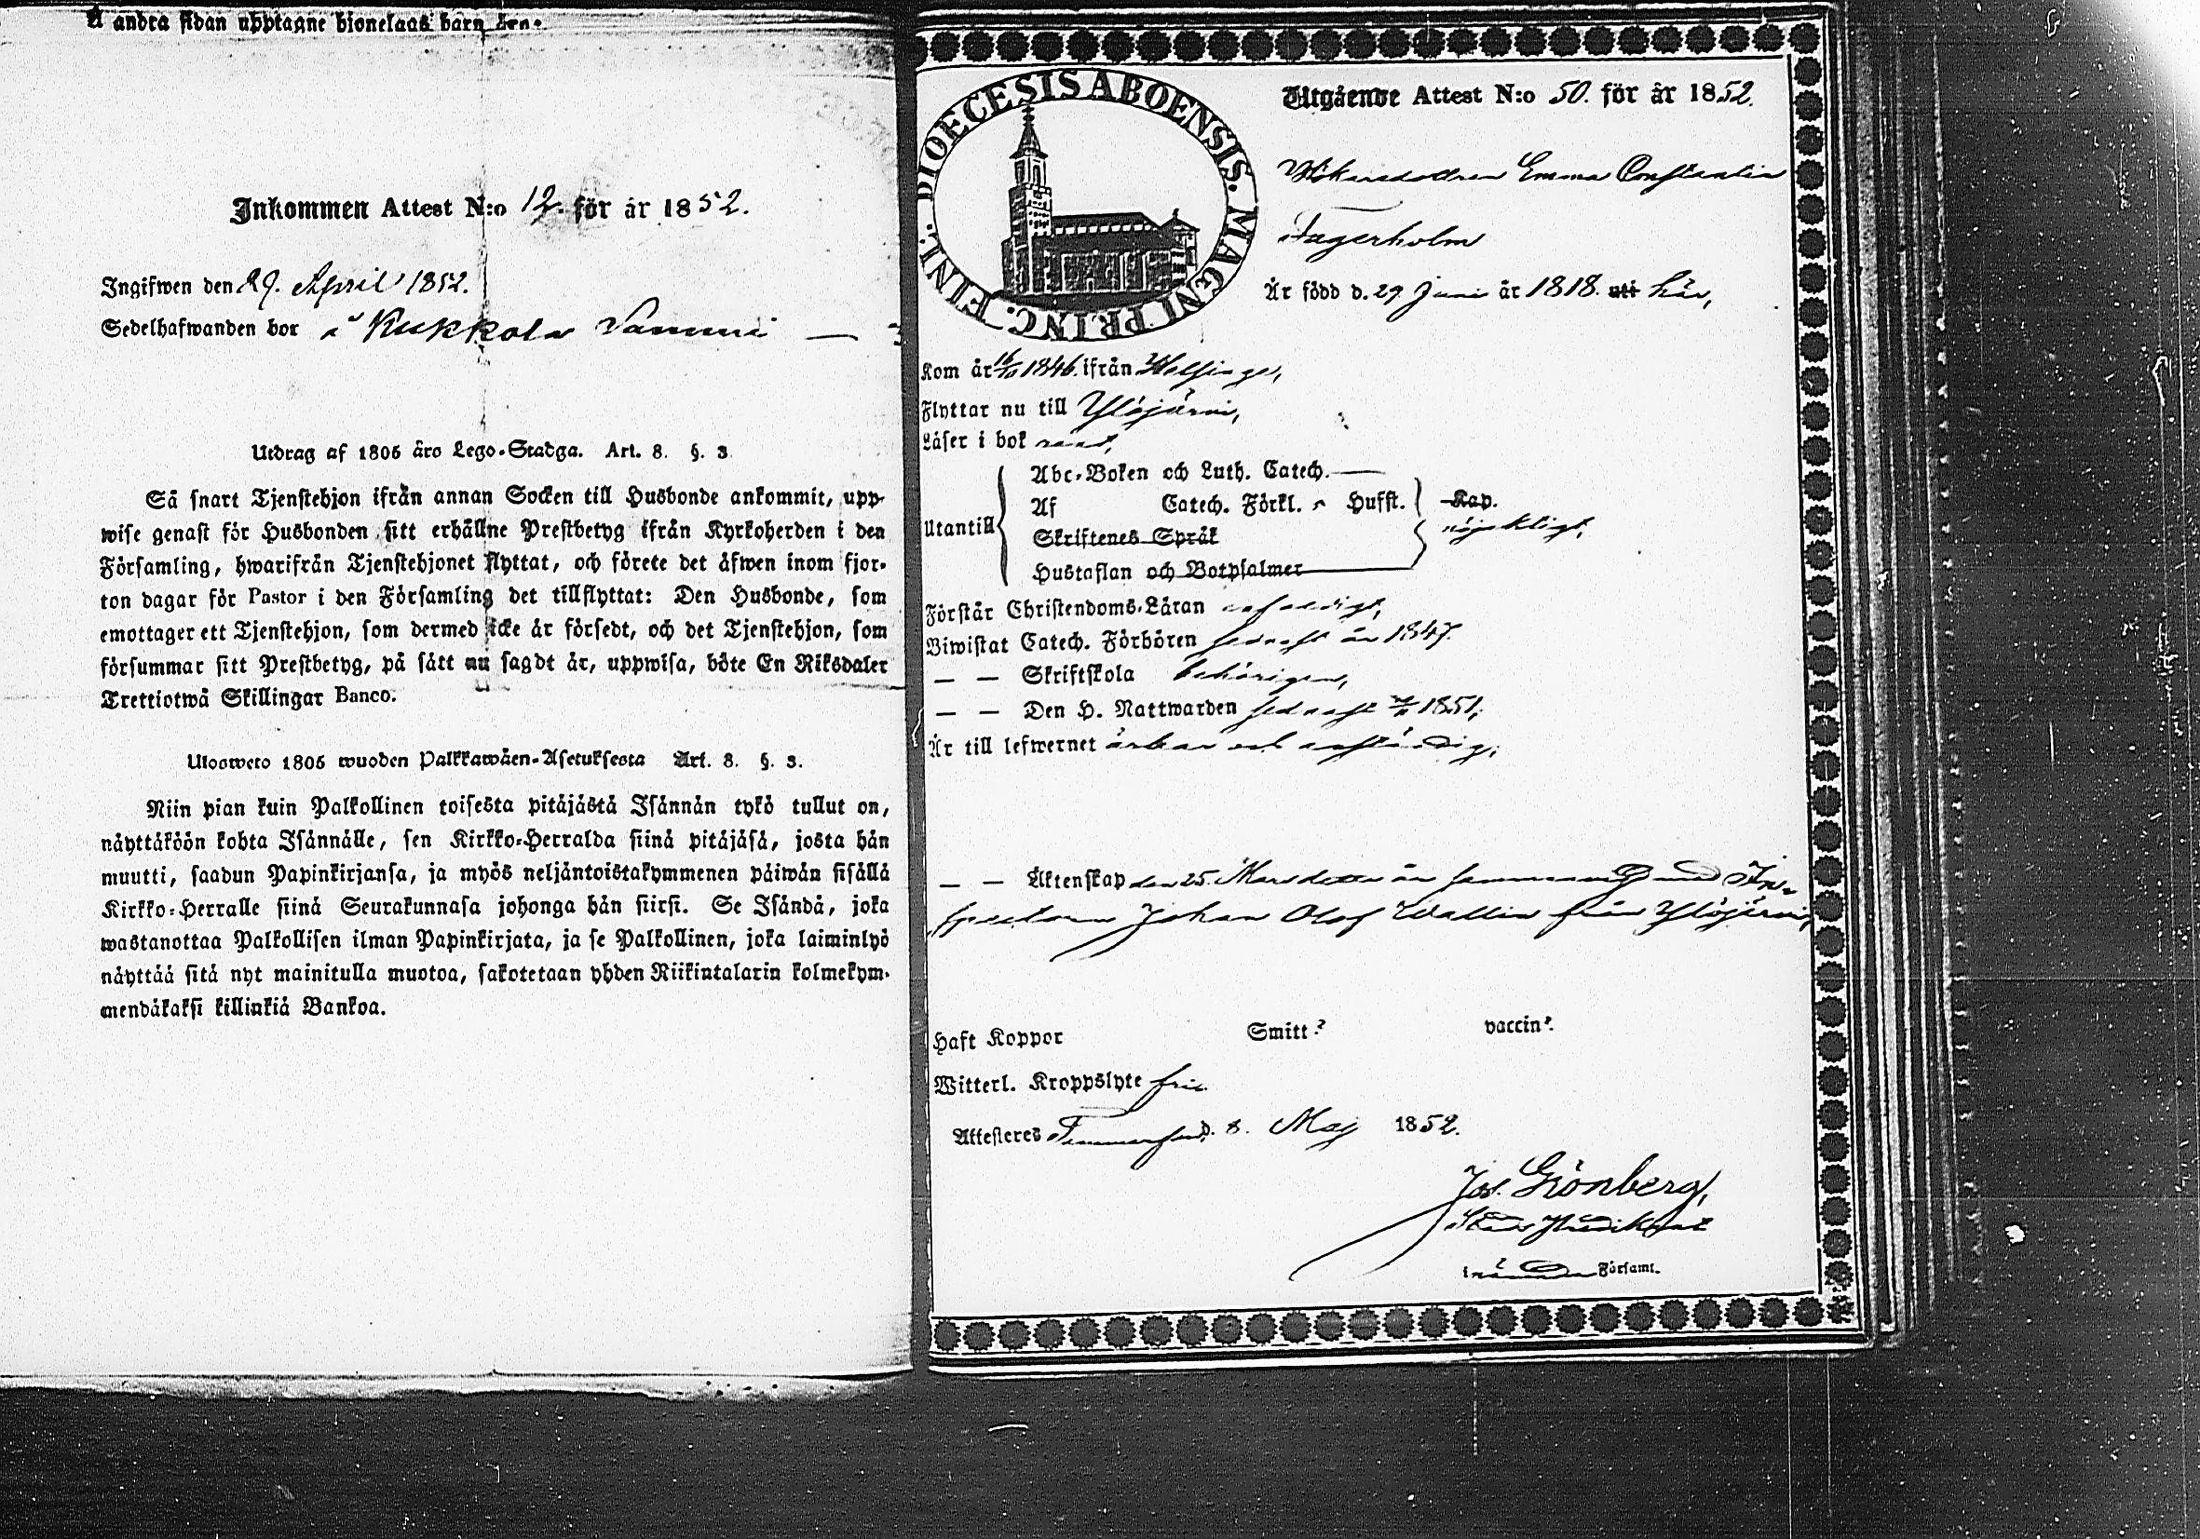 å andra sidan upptagne hjonelags barn åro:
Inkommen Attest N:o 12. för år 1852.
Ingifwen den 29. April 1852.
Sedelhafwanden bor å Kukkola Sammi —
Utdrag af 1805 års Lego-Stadga. Art. 8. §. 3
Så snart Tjenstehjon ifrån annan Socken till Husbonde ankommit, upp-
wise genast för Husbonden sitt erhållne Prestbetyg ifrån Kyrkoherden i den
Församling, hwarifrån Tjenstehjonet flyttat, och förete det åfwen inom fjor-
ton dagar för Pastor i den Församling det tillflyttat: Den Husbonde, som
emottager ett Tjenstehjon, som dermed icke år försedt, och det Tjenstehjon, som
försummar sitt Prestbetyg, på sått nu sagdt år, uppwisa, böte En Riksdaler
Trettiotwå Skillingar Banco.
Ulosweto 1805 wuoden Palkkawåen-Asetuksesta Art. 8. §. 3.
Niin pian kuin Palkollinen toisesta pitåjåstå Isånnån tykö tullut on,
nåyttåköön kohta Isånnålle, sen Kirkko-Herralda siinå pitåjåså, josta hån
muutti, saadun Papinkirjansa, ja myös neljåntoistakymmenen påiwån sisållå
Kirkko-Herralle siinå Seurakunnasa johonga hån siirsi. Se Isåndå, joka
wastanottaa Palkollisen ilman Papinkirjata, ja se Palkollinen, joka laiminlyö
nåyttåå sitå nyt mainitulla muotoa, sakotetaan yhden Riikintalarin kolmekym-
mendåkaksi killinkiå Bankoa.
DIOECESIS ABOENSIS. MAGNI PRINC. FINL.
Utgående Attest N:o 50. för år 1852.
Hökaredottren Emma Constantia
Fagerholm
År född d. 29 Juni år 1818. uti här,
Kom år 16/10 1846. ifrån Helsinge,
Flyttar nu till Ylöjärvi,
Låser i bok rent,
Abc-Boken och Luth. Catech. —
Af Catech. Förkl. Hufst. Kap.
Utantill nöjaktligt,
Skriftenes Språk
Hustaflan och Botpsalmer
Förstår Christendoms-Låran
Biwistat Catech. Förhören sednast år 1847.
— — Skriftskola behörigen,
— — Den H. Nattwarden sednast 1851,
År till lefwernet ärbar och anständig;
— — Åktenskap den 25. Mars detta år sammanvigd med In-
spectoren Johan Olof Wallin från Ylöjärvi,
Haft Koppor Smitt? vaccin?
Witterl. Kroppslyte fri.
Attesteres Tammerfors, d. 8. Maj 1852.
Jos. Grönberg,
Stads Predikant
i nämnda Församl.